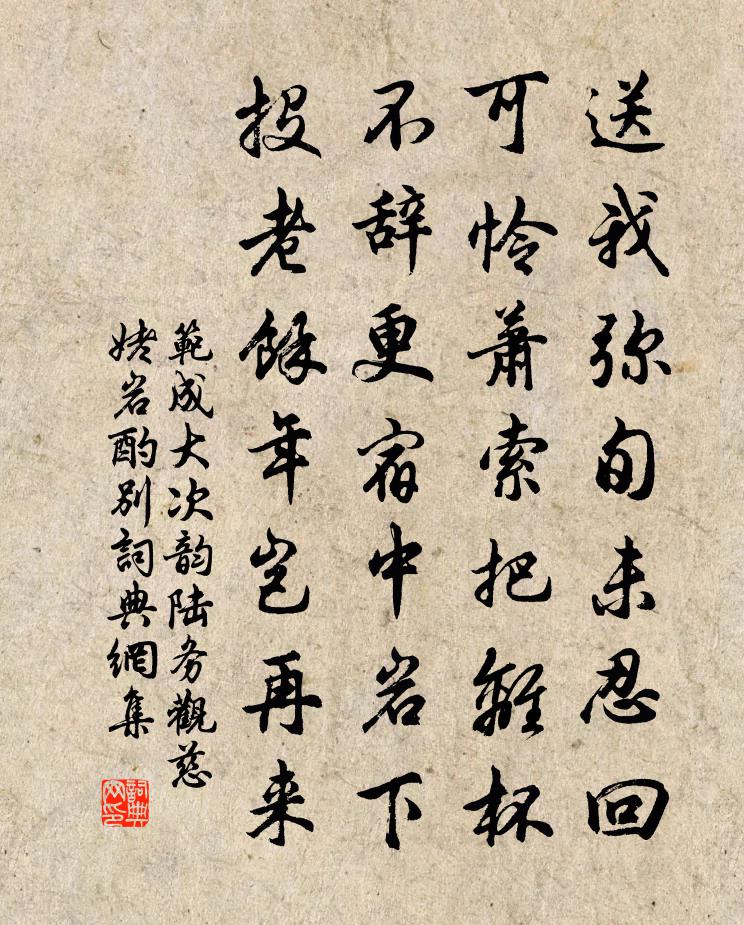 送我弥旬未忍回
可怜萧索把離杯
不辞更宿中岩下
投老餘年岂再来
範成大次韵陆务觀慈
姥岩酌别詞典網集
詞典网印